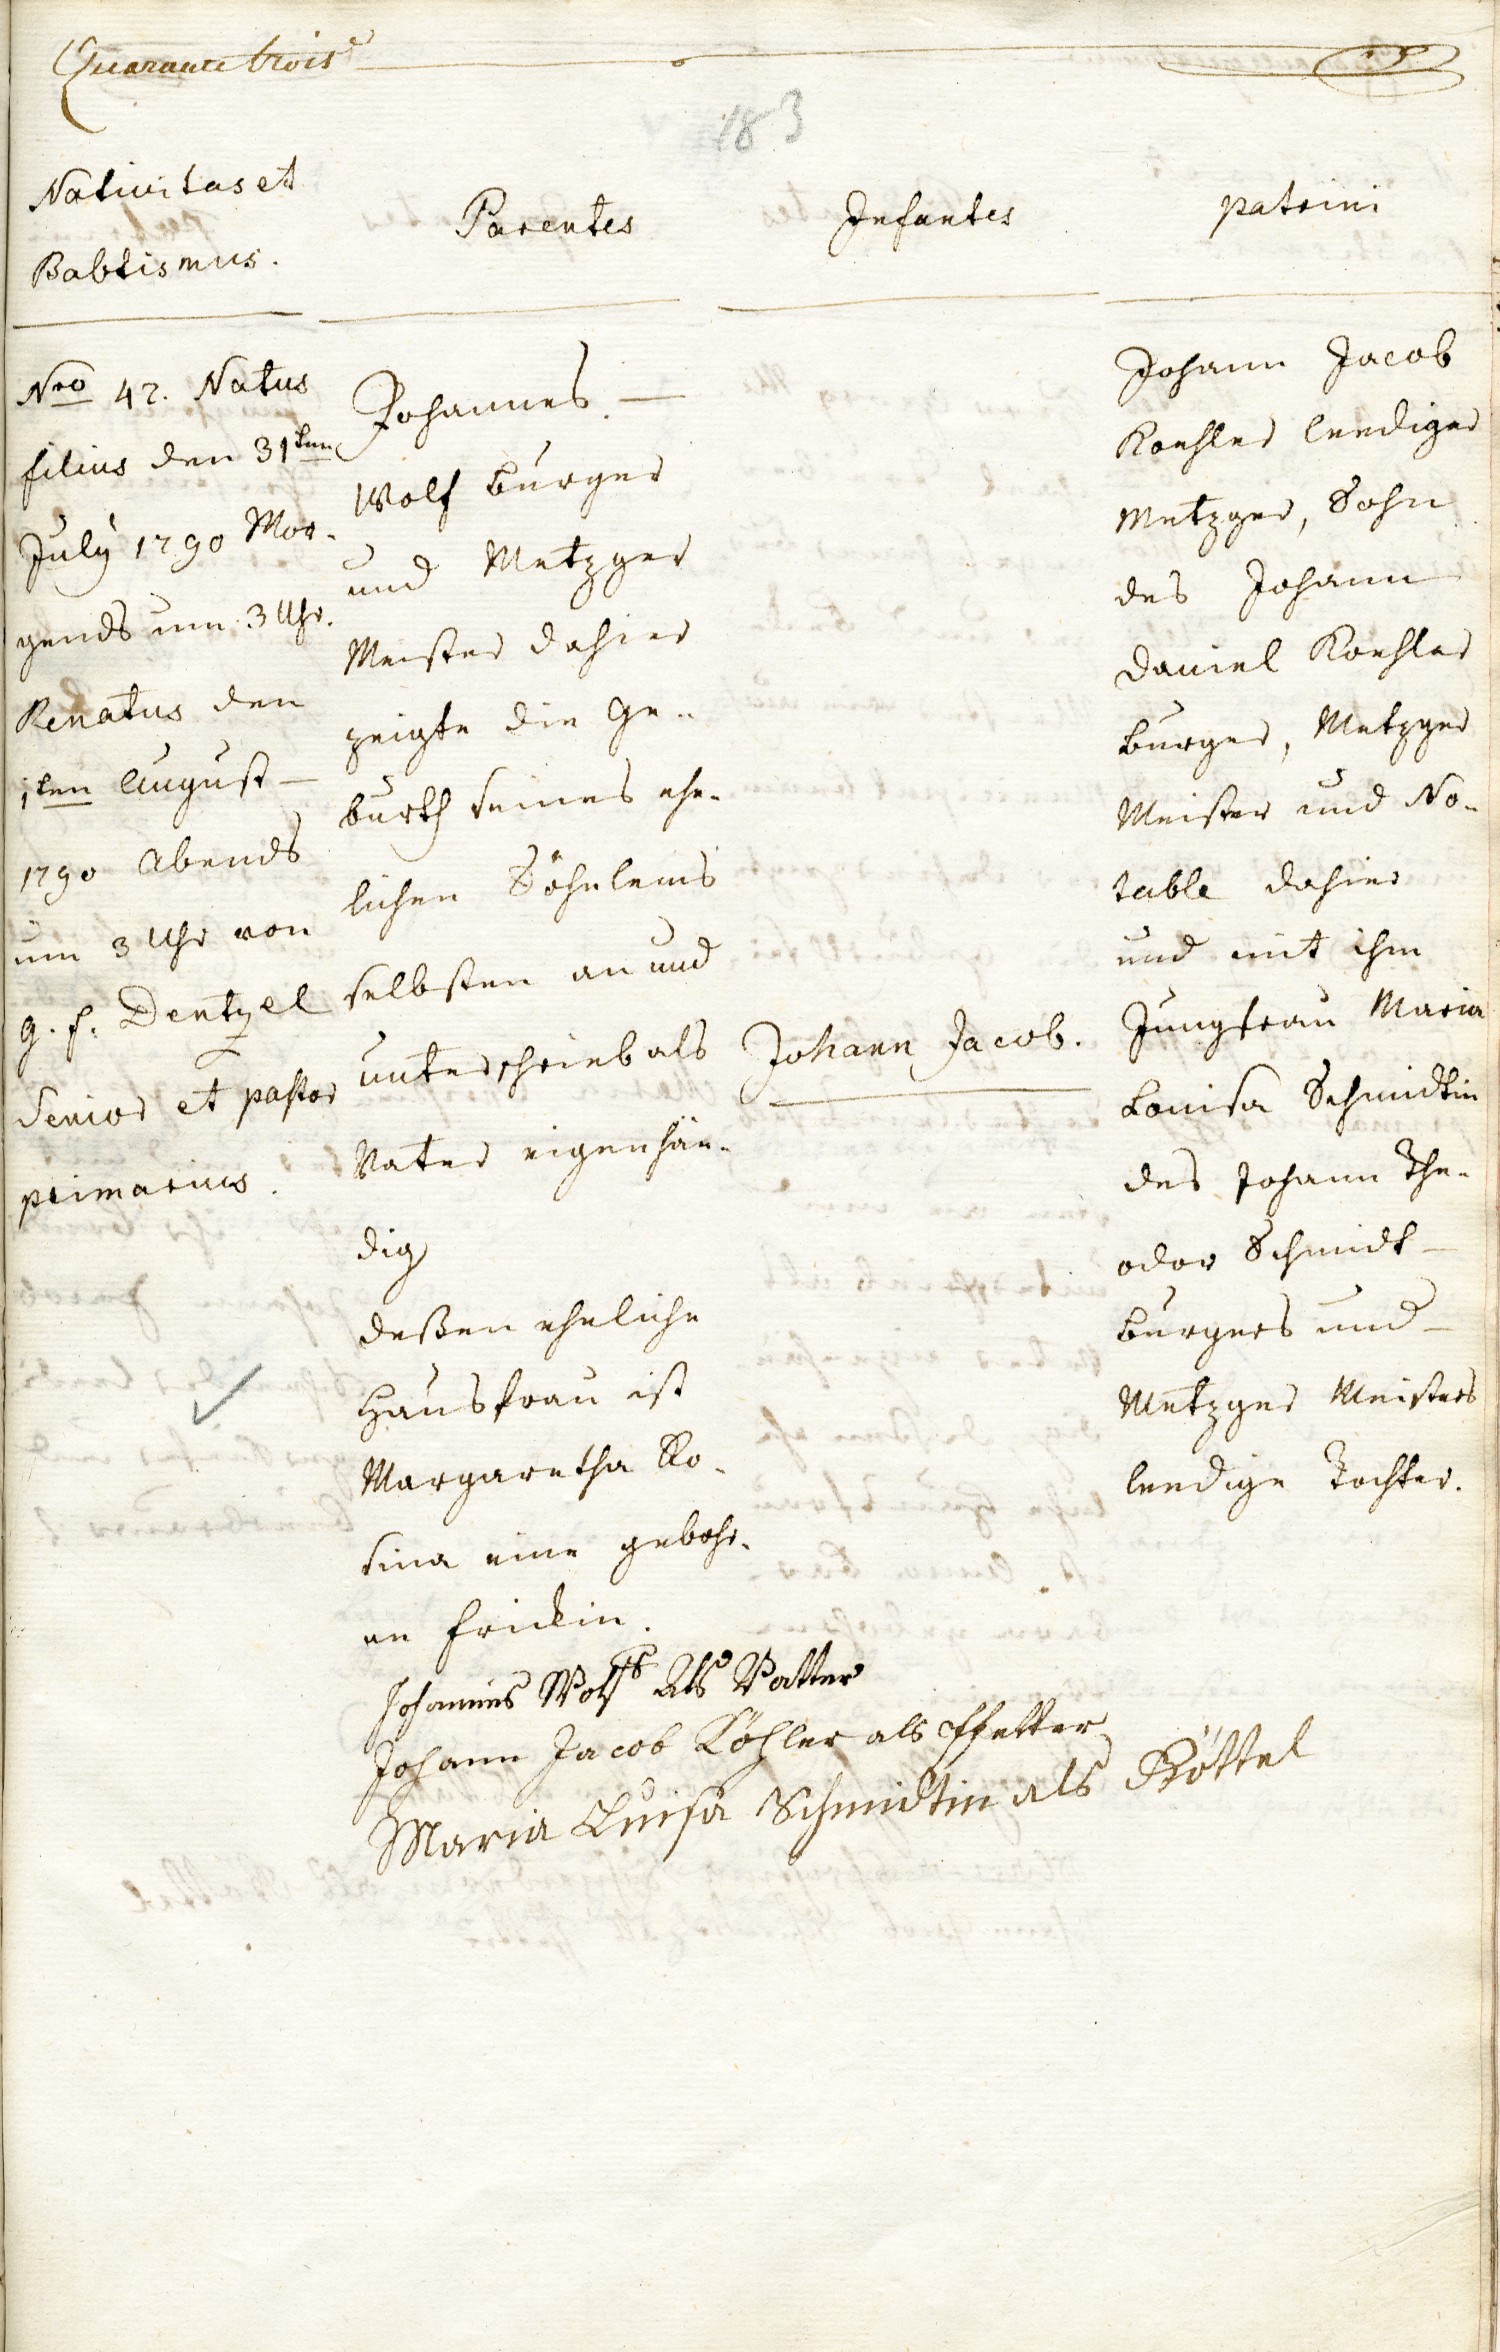 Quarante trois
183
Nativitas et
Babtismus.
Parentes
Infantes
patrini
Nro 42. Natus
filius den 31ten
July 1790 Mor-
gends um 3 Uhr.
Renatus den
1ten August
1790 Abends
um 3 Uhr von
G. F. Dentzel
Senior et pastor
primarius.
Johannes.
Wolf burger
und Metzger
Meister dahier
zeigte die Ge-
burth seines ehe-
lichen Söhnleins
selbsten an und
unterschrieb als
Vater eigenhän-
dig
deßen eheliche
Hausfrau ist
Margaretha Ro-
sina eine gebohr-
ne Frickin.
Johann Jacob.
Johann Jacob
Koehler leediger
Metzger, Sohn
des Johann
Daniel Koehler
burger, Metzger
Meister und No-
table dahier
und mit ihm
Jungfrau Maria
Louisa Schmidtin
des Johann The-
odor Schmidt
burgers und
Metzger Meisters
leedige Tochter.
Johannes Wolff Als Vatter
Johann Jacob Köhler als Pfetter
Maria Luisa Schmidtin als Göttel